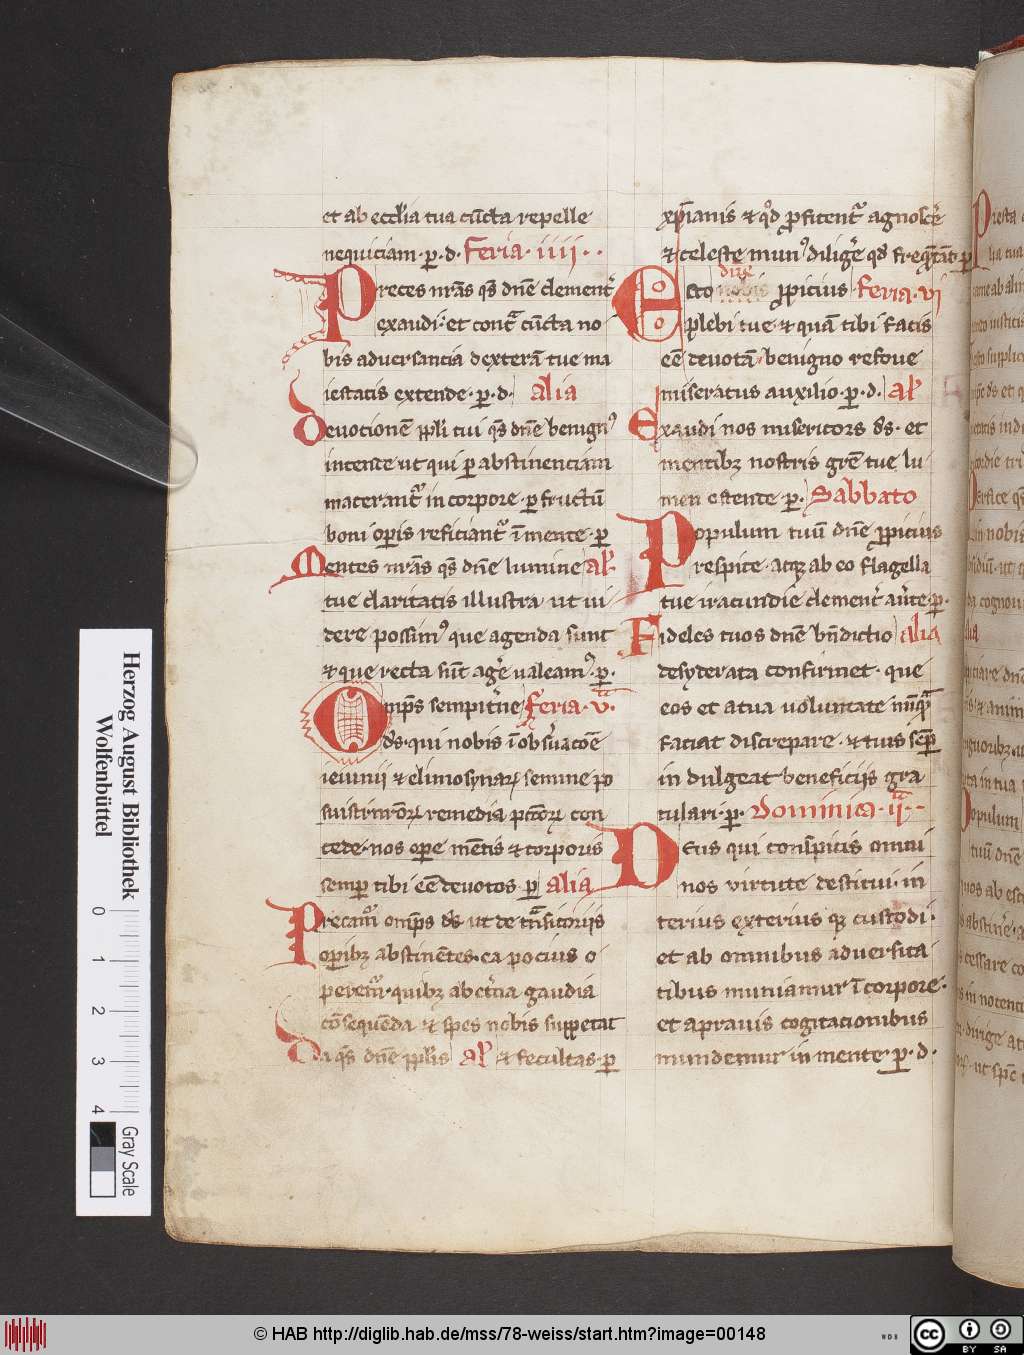 et ab eccl'ia tua cūcta repelle
nequiciam · p̱ · d · Feria · iiii · ·
Preces nr̄as q̄s dn̄e clement᷑
exaudi · et cont̄ cūcta no
bis aduersancia dexterā tue ma
iestatis extende · p̱ · d · alia
Deuotionē ppli tui q̄s dn̄e benignꝰ
intende ut qui p̱ abstinenciam
macerant᷑ in corpore · p̱ fructū
boni op̱is reficiant᷑ ī mente · p̱
Mentes nr̄as q̄s dn̄e lumine al'
tue claritatis illustra ut ui
dere possimꝰ que agenda sunt
⁊ que recta sūt ag̃e ualeamꝰ · p̱ ·
Omp̄s sempit̾ne Feria · v ·
ds · qui nobis ī obs̾uacōe
ieiunii ⁊ elimosynaꝝ semine po
suisti nr̄oꝝ remedia pcc̄oꝝ con
cede · nos op̱e mētis ⁊ corporis
semp̱ tibi eē deuotos p̱ alia
Precamꝰ omp̄s ds ut de trāsitoriis
op̱ibꝫ abstinētes · ea pocius o
peremꝰ · quibꝫ ad et̾na gaudia
cōsequēda ⁊ spes nobis suppetat
Da q̄s dn̄e pplis al' ⁊ fecultas · p̱
xp̄ianis ⁊ qd̾ ꝓfitent᷑ agnosc̾e
⁊ celeste munꝰ dilig̾e qd̾ freq̄ntāt p̱
Esto nobis ꝓpicius Feria · vi
dn̄e
plebi tue · ⁊ quā tibi facis
eē deuotā · benigno refoue
miseratus auxilio · p̱ · d · al'
Exaudi nos misericors ds · et
mentibꝫ nostris gr̄e tue lu
men ostende · p̱ · Sabbato
Populum tuū dn̄e ꝓpicius
respice · atqꝫ ab eo flagella
tue iracundie clement᷑ au̾te · p̱ ·
Fideles tuos dn̄e bn̄dictio alia
desyderata confirmet · que
eos et a tua uoluntate nūq̄
faciat discrepare · ⁊ tuis semp̱
in dulgeat beneficijs gra
tulari · p̱ · Dominica · ij · ·
Deus qui conspicis omni
nos virtute destitui · in
terius exterius qꝫ custodi ·
et ab omnibus aduersita
tibus muniamur ī corpore ·
et a prauis cogitacionibus
mundemur in mente · p̱ · d ·
Herzog August Bibliothek
Wolfenbüttel
0 1 2 3 4
Gray Scale
© HAB http://diglib.hab.de/mss/78-weiss/start.htm?image=00148
WDB
cc BY SA